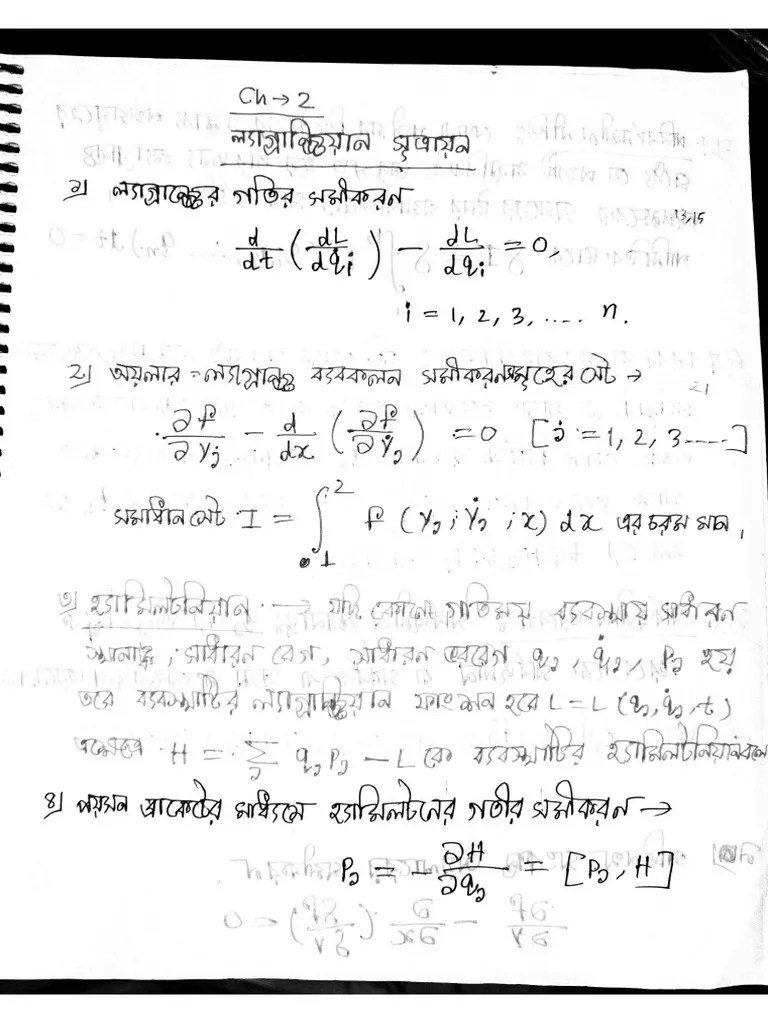 Ch → 2
ল্যাগ্রাঞ্জিয়ান সূত্রায়ন
১) ল্যাগ্রাঞ্জের গতির সমীকরণ
13,15
d/dt (dL/dq̇i) − dL/dqi = 0,
i = 1, 2, 3, .... n.
২) অয়লার = ল্যাগ্রাঞ্জ ব্যবকলন সমীকরণসমূহের সেট →
21
∂f/∂yj − d/dx (∂f/∂ẏj) = 0 [j = 1, 2, 3.....]
সমাধান সেট I = ∫₁² f (yj ; ẏj ; x) dx এর চরম মান,
৩) হ্যামিলটনিয়ান → যদি কোনো গতিময় ব্যবস্থায় সাধারন
স্থানাঙ্ক, সাধারন বেগ, সাধারন ভরবেগ qj, q̇j, Pj হয়
তবে ব্যবস্থাটির ল্যাগ্রাঞ্জিয়ান ফাংশন হবে L = L (qj, q̇j, t)
এক্ষেত্রে H = ∑j q̇jPj − L কে ব্যবস্থাটির হ্যামিলটনিয়ান বলে
৪) পয়সন ব্রাকেটের মাধ্যমে হ্যামিলটনের গতীর সমীকরণ →
Ṗj = − ∂H/∂qj = [Pj, H]